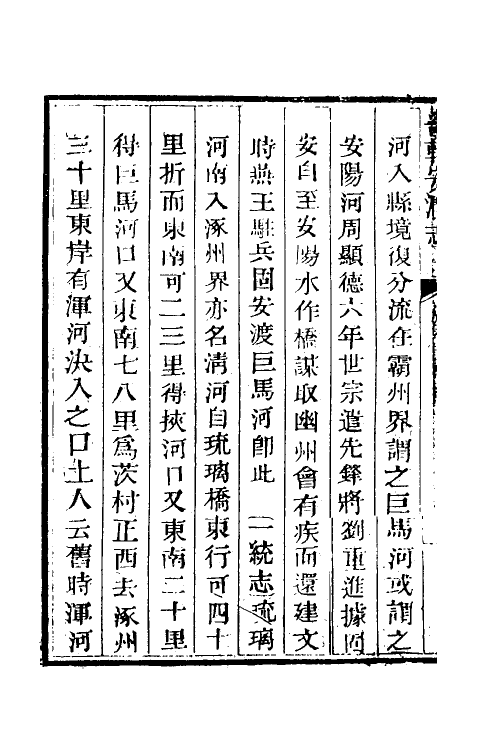 河入縣境復分流在霸州界謂之巨馬河或謂之
安陽河周顯德六年世宗遣先鋒將劉重進據固
安自至安陽水作橋謀取幽州會有疾而還建文
時燕王駐兵固安渡巨馬河卽此　一統志琉璃
河南入涿州界亦名清河自琉璃橋東行可四十
里折而東南可二三里得挾河口又東南二十里
得巨馬河口又東南七八里爲茨村正西去涿州
三十里東岸有渾河決入之口土人云舊時渾河